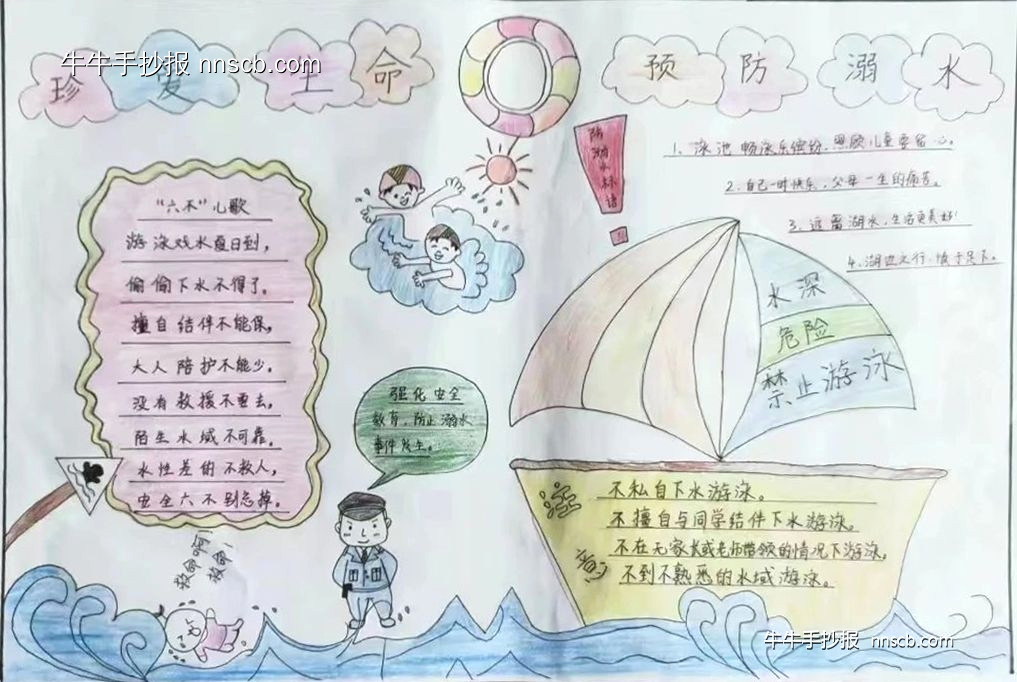 珍爱生命
预防溺水
牛牛手抄报 nnscb.com
"六不"儿歌
游泳戏水夏日到，
偷偷下水不得了。
擅自结伴不能保，
大人陪护不能少。
没有救援不要去，
陌生水域不可靠。
水性差的不救人，
安全六不别忘掉。
救命啊！
救命！
强化安全
教育，防止溺水
事件发生。
防溺水标语
1、泳池畅泳乐缤纷，照顾儿童要留心。
2、自己一时快乐，父母一生的痛苦。
3、远离湖水，生活更美好！
4、湖边之行，慎于足下。
水深
危险
禁止游泳
注意
不私自下水游泳。
不擅自与同学结伴下水游泳。
不在无家长或老师带领的情况下游泳。
不到不熟悉的水域游泳。
牛牛手抄报 nnscb.com